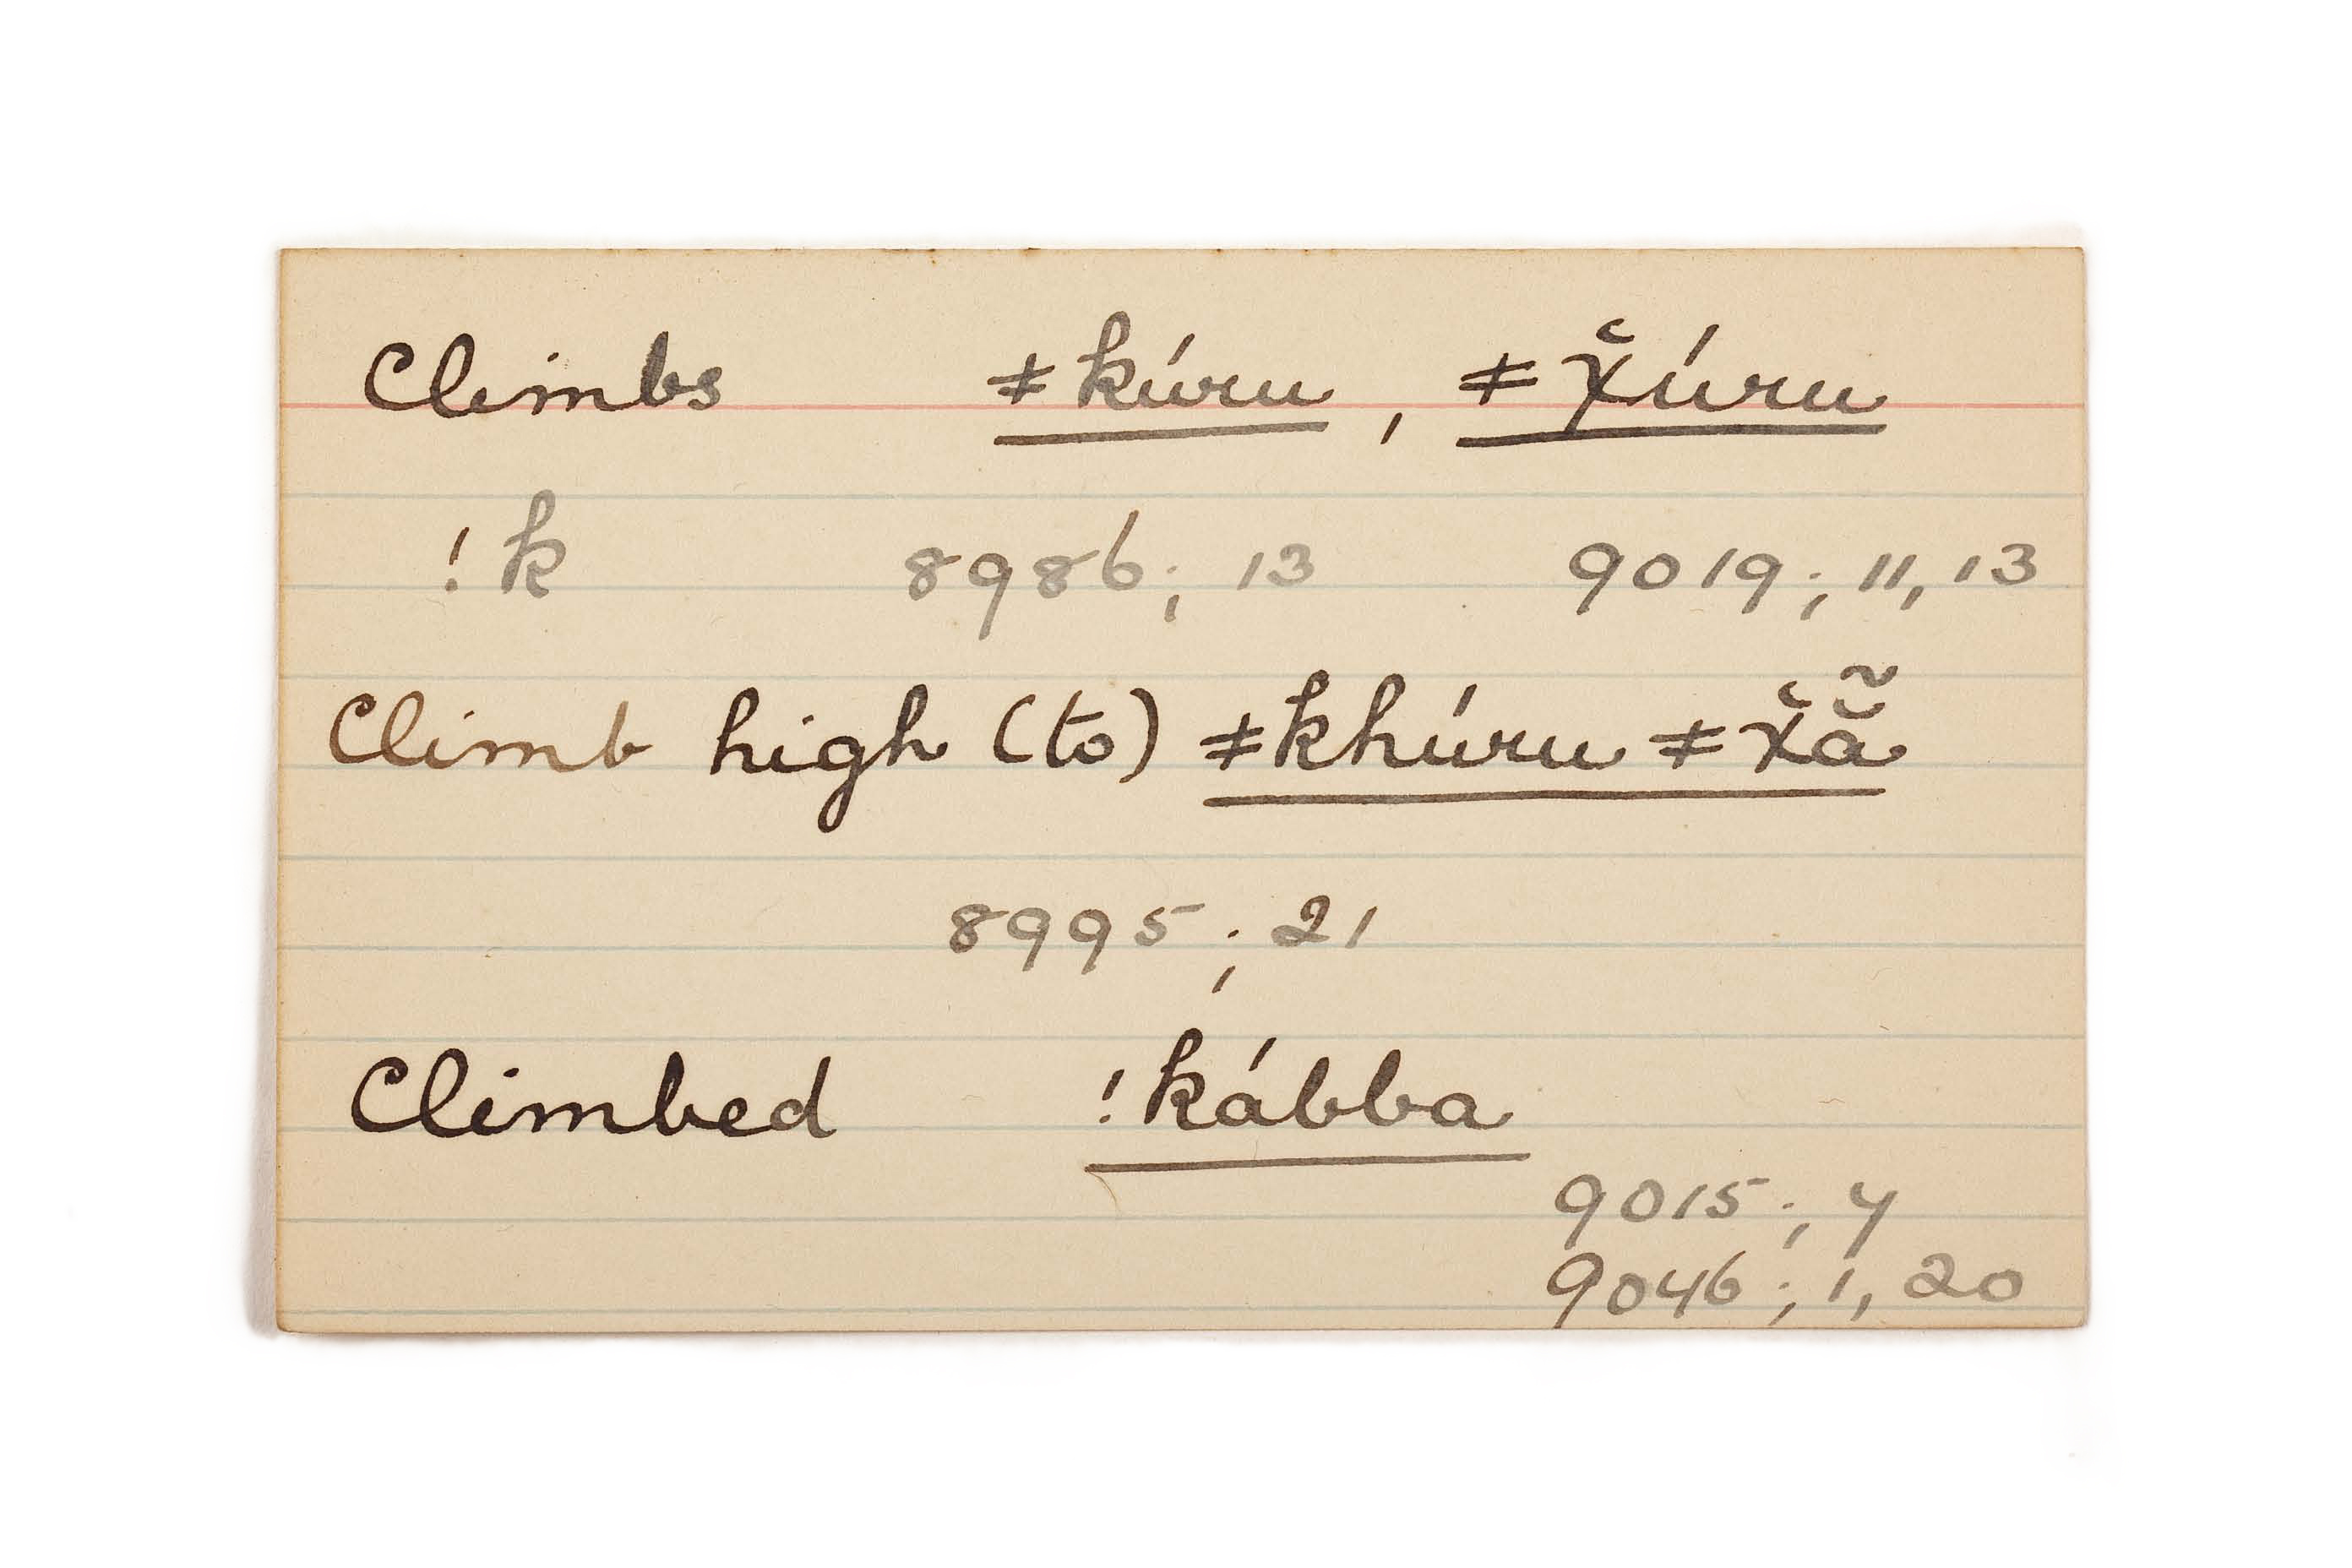 Climbs ǂkúru, ǂχ̆úru
!k 8986; 13 9019; 11, 13
Climb high (to) ǂkhúru ǂχ̆ã̆
8995; 21
Climbed !kábba
9015; 4
9046; 1, 20